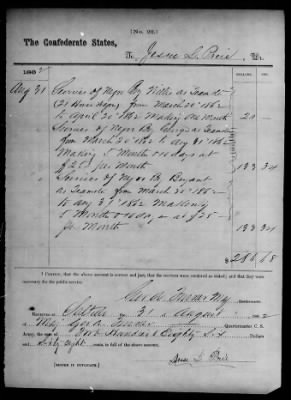 [No. 22.]
The Confederate States,
To Jesse L. Price Dr.
186 2 DOLLARS. CTS.
Aug 31 Services of Negro Boy Willis as Teamster
from March 20th 1862
to April 20th 1862 making one month 20 —
Services of Negro Boy George as Teamster
from March 20th 1862 to Aug 31st 1862
making 5 Months days at
$25 per Month 133 34
Services of Negro Boy Bryant
as Teamster from March 20th 1862
to Aug 31st 1862 making
5 Months at $25
per Month 133 34
$286 68
I CERTIFY, that the above account is correct and just; that the services were rendered as stated; and that they were
necessary for the public service.
Quartermaster.
RECEIVED at 31st August 2
of Quartermaster C. S.
Army, Two Hundred Eighty Six Dollars
and Sixty Eight cents, in full of the above account.
Jesse L Price
[SIGNED IN DUPLICATE.]